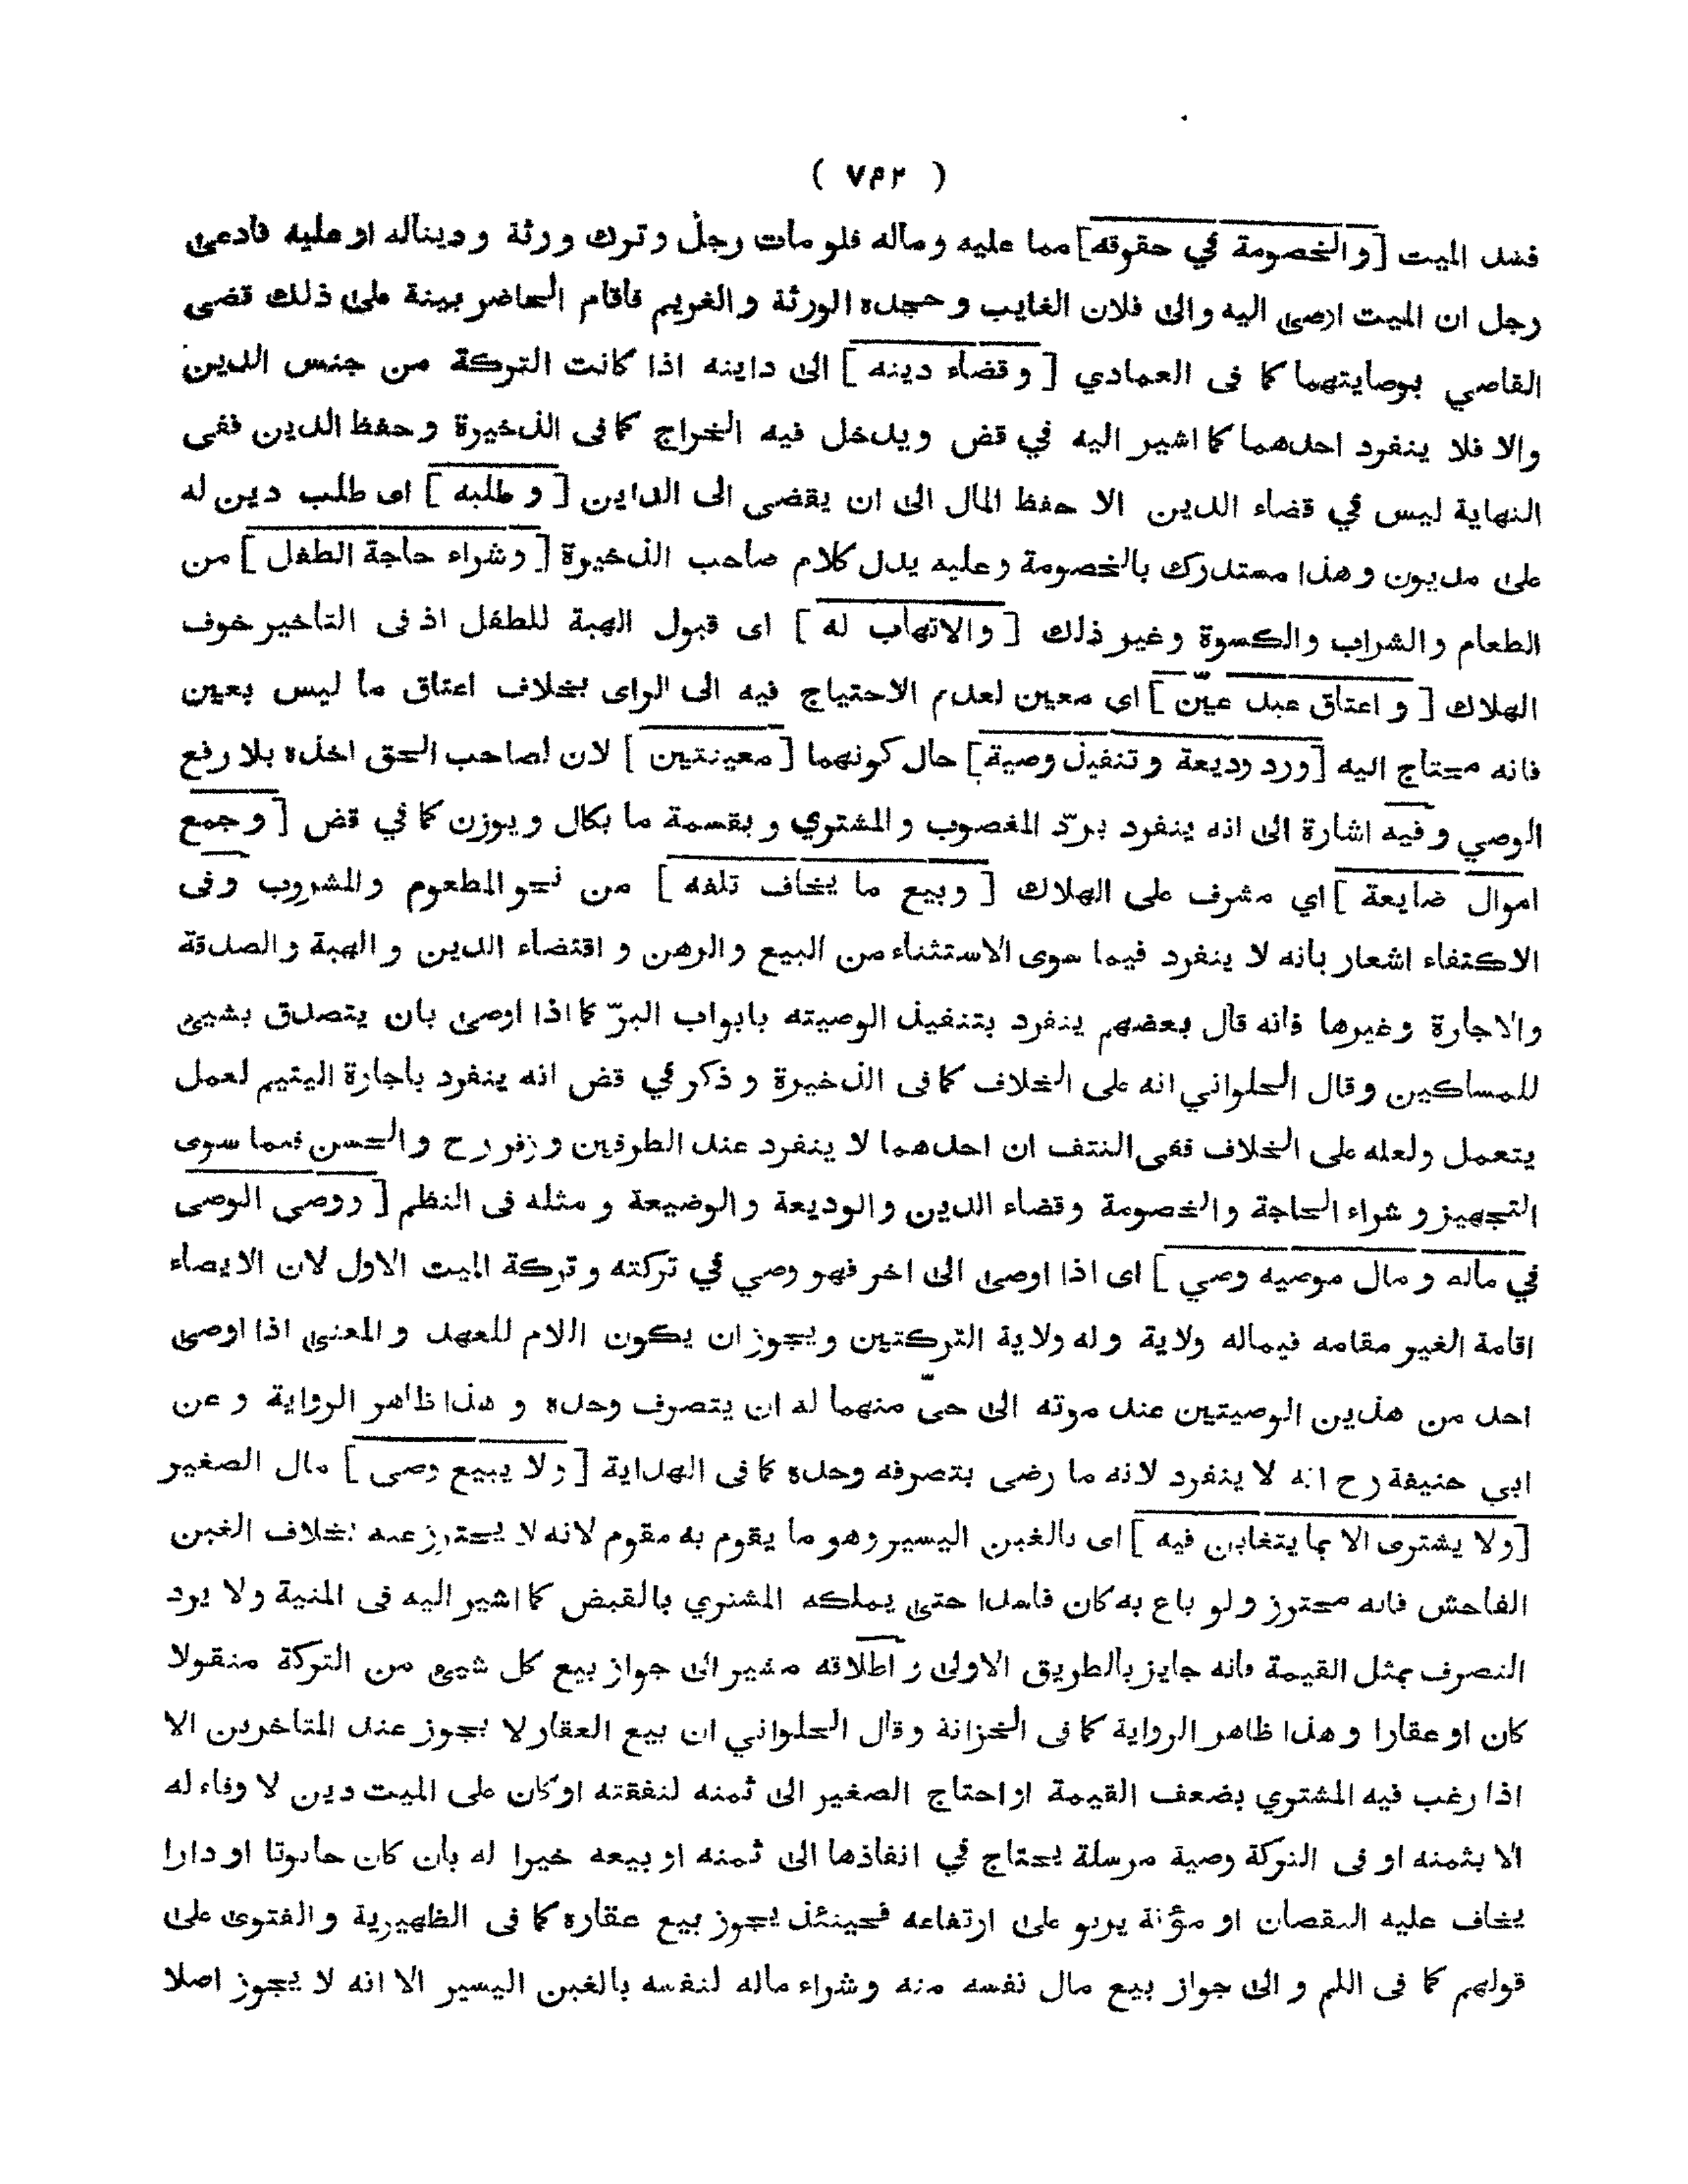 ( ٧٣٢ )
فضد الميت [والخصومة في حقوقه] مما عليه وماله فلو مات رجل وترك ورثة ودينا له او عليه فادعى
رجل ان الميت اوصى اليه والى فلان الغايب وحجده الورثة والغريم فاقام الحاضر بينة على ذلك قضى
القاضي بوصايتهما كما فى العمادي [وقضاء دينه] الى داينه اذا كانت التركة من جنس الدين
والا فلا ينفرد احدهما كما اشير اليه في قض ويدخل فيه الخراج كما فى الذخيرة وحفظ الدين ففى
النهاية ليس في قضاء الدين الا حفظ المال الى ان يقضى الى الداين [وطلبه] اى طلب دين له
على مديون وهذا مستدرك بالخصومة وعليه يدل كلام صاحب الذخيرة [وشراء حاجة الطفل] من
الطعام والشراب والكسوة وغير ذلك [والاتهاب له] اى قبول الهبة للطفل اذ فى التأخير خوف
الهلاك [واعتاق عبد عيّن] اى معين لعدم الاحتياج فيه الى الراى بخلاف اعتاق ما ليس بعين
فانه محتاج اليه [ورد وديعة وتنفيذ وصية] حال كونهما [معينتين] لان لصاحب الحق اخذه بلا رفع
الوصي وفيه اشارة الى انه ينفرد بردّ المغصوب والمشتري وبقسمة ما بكال ويوزن كما في قض [وجمع
اموال ضايعة] اي مشرف على الهلاك [وبيع ما يخاف تلفه] من نحو المطعوم والمشروب وفى
الاكتفاء اشعار بانه لا ينفرد فيما سوى الاستثناء من البيع والرهن و اقتضاء الدين والهبة والصدقة
والاجارة وغيرها فانه قال بعضهم ينفرد بتنفيذ الوصيته بابواب البرّ كما اذا اوصى بان يتصدق بشيئ
للمساكين وقال الحلواني انه على الخلاف كما فى الذخيرة وذكر في قض انه ينفرد باجارة اليتيم لعمل
يتعمل ولعله على الخلاف ففى النتف ان احدهما لا ينفرد عند الطرفين وزفر رح والحسن فيما سوى
التجهيز وشراء الحاجة والخصومة وقضاء الدين والوديعة والوضيعة ومثله فى النظم [ووصي الوصى
في ماله ومال موصيه وصي] اى اذا اوصى الى اخر فهو وصي في تركته وتركة الميت الاول لان الايصاء
اقامة الغير مقامه فيماله ولاية وله ولاية التركتين ويجوز ان يكون اللام للعهد والمعنى اذا اوصى
احد من هذين الوصيتين عند موته الى حىّ منهما له ان يتصرف وحده و هذا ظاهر الرواية و عن
ابي حنيفة رح انه لا ينفرد لانه ما رضى بتصرفه وحده كما فى الهداية [ولا يبيع وصى] مال الصغير
[ولا يشترى الا بما يتغابن فيه] اى بالغبن اليسير وهو ما يقوم به مقوم لانه لا يحترز عنه بخلاف الغبن
الفاحش فانه محترز ولو باع به كان فاسدا حتى يملكه المشتري بالقبض كما اشير اليه فى المنية ولا يرد
التصرف بمثل القيمة فانه جايز بالطريق الاولى و اطلاقه مشير الى جواز بيع كل شيئ من التركة منقولا
كان او عقارا وهذا ظاهر الرواية كما فى الخزانة وقال الحلواني ان بيع العقار لا يجوز عند المتاخرين الا
اذا رغب فيه المشتري بضعف القيمة او احتاج الصغير الى ثمنه لنفقته او كان على الميت دين لا وفاء له
الا بثمنه او فى التركة وصية مرسلة يحتاج في انفاذها الى ثمنه او بيعه خيرا له بان كان حانوتا او دارا
يخاف عليه النقصان او مؤنة يربو على ارتفاعه فحينئذ يجوز بيع عقاره كما فى الظهيرية والفتوى على
قولهم كما فى اللم و الى جواز بيع مال نفسه منه وشراء ماله لنفسه بالغبن اليسير الا انه لا يجوز اصلا